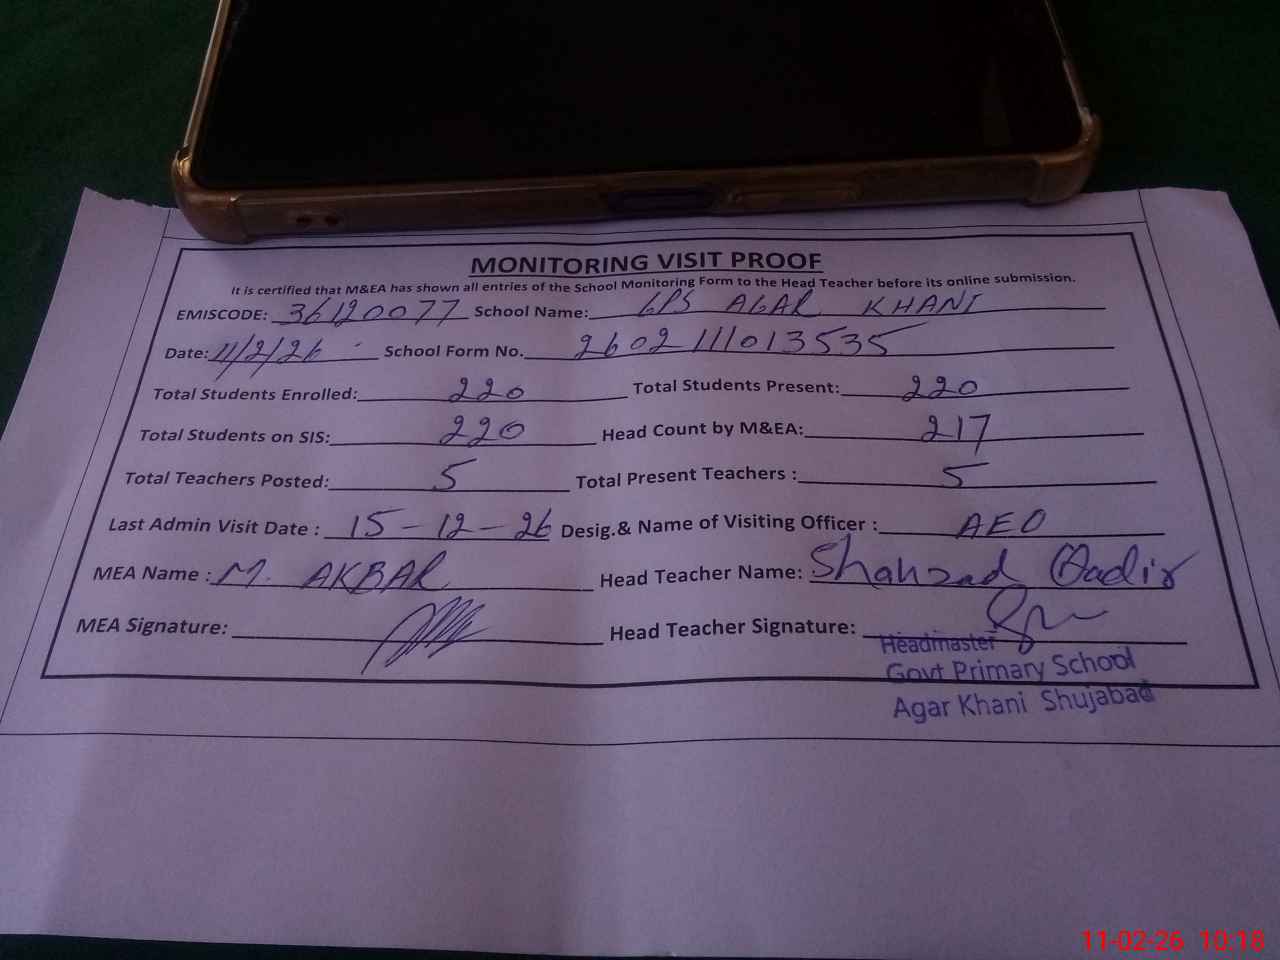 MONITORING VISIT PROOF
It is certified that M&EA has shown all entries of the School Monitoring Form to the Head Teacher before its online submission.
EMISCODE: 36120077 School Name: GPS AGAR KHANI
Date: 11/2/26 School Form No. 2602111013535
Total Students Enrolled: 220 Total Students Present: 220
Total Students on SIS: 220 Head Count by M&EA: 217
Total Teachers Posted: 5 Total Present Teachers : 5
Last Admin Visit Date : 15-12-26 Desig.& Name of Visiting Officer : AEO
MEA Name : M. AKBAR Head Teacher Name: Shahzad Qadir
MEA Signature: Head Teacher Signature:
Headmaster
Govt Primary School
Agar Khani Shujabad
11-02-26 10:18